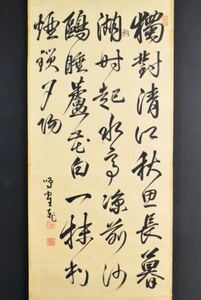 獨對清江秋思長暮
潮時起水亭涼前沙
鷗睡蘆花白一抹
煙鎖夕陽